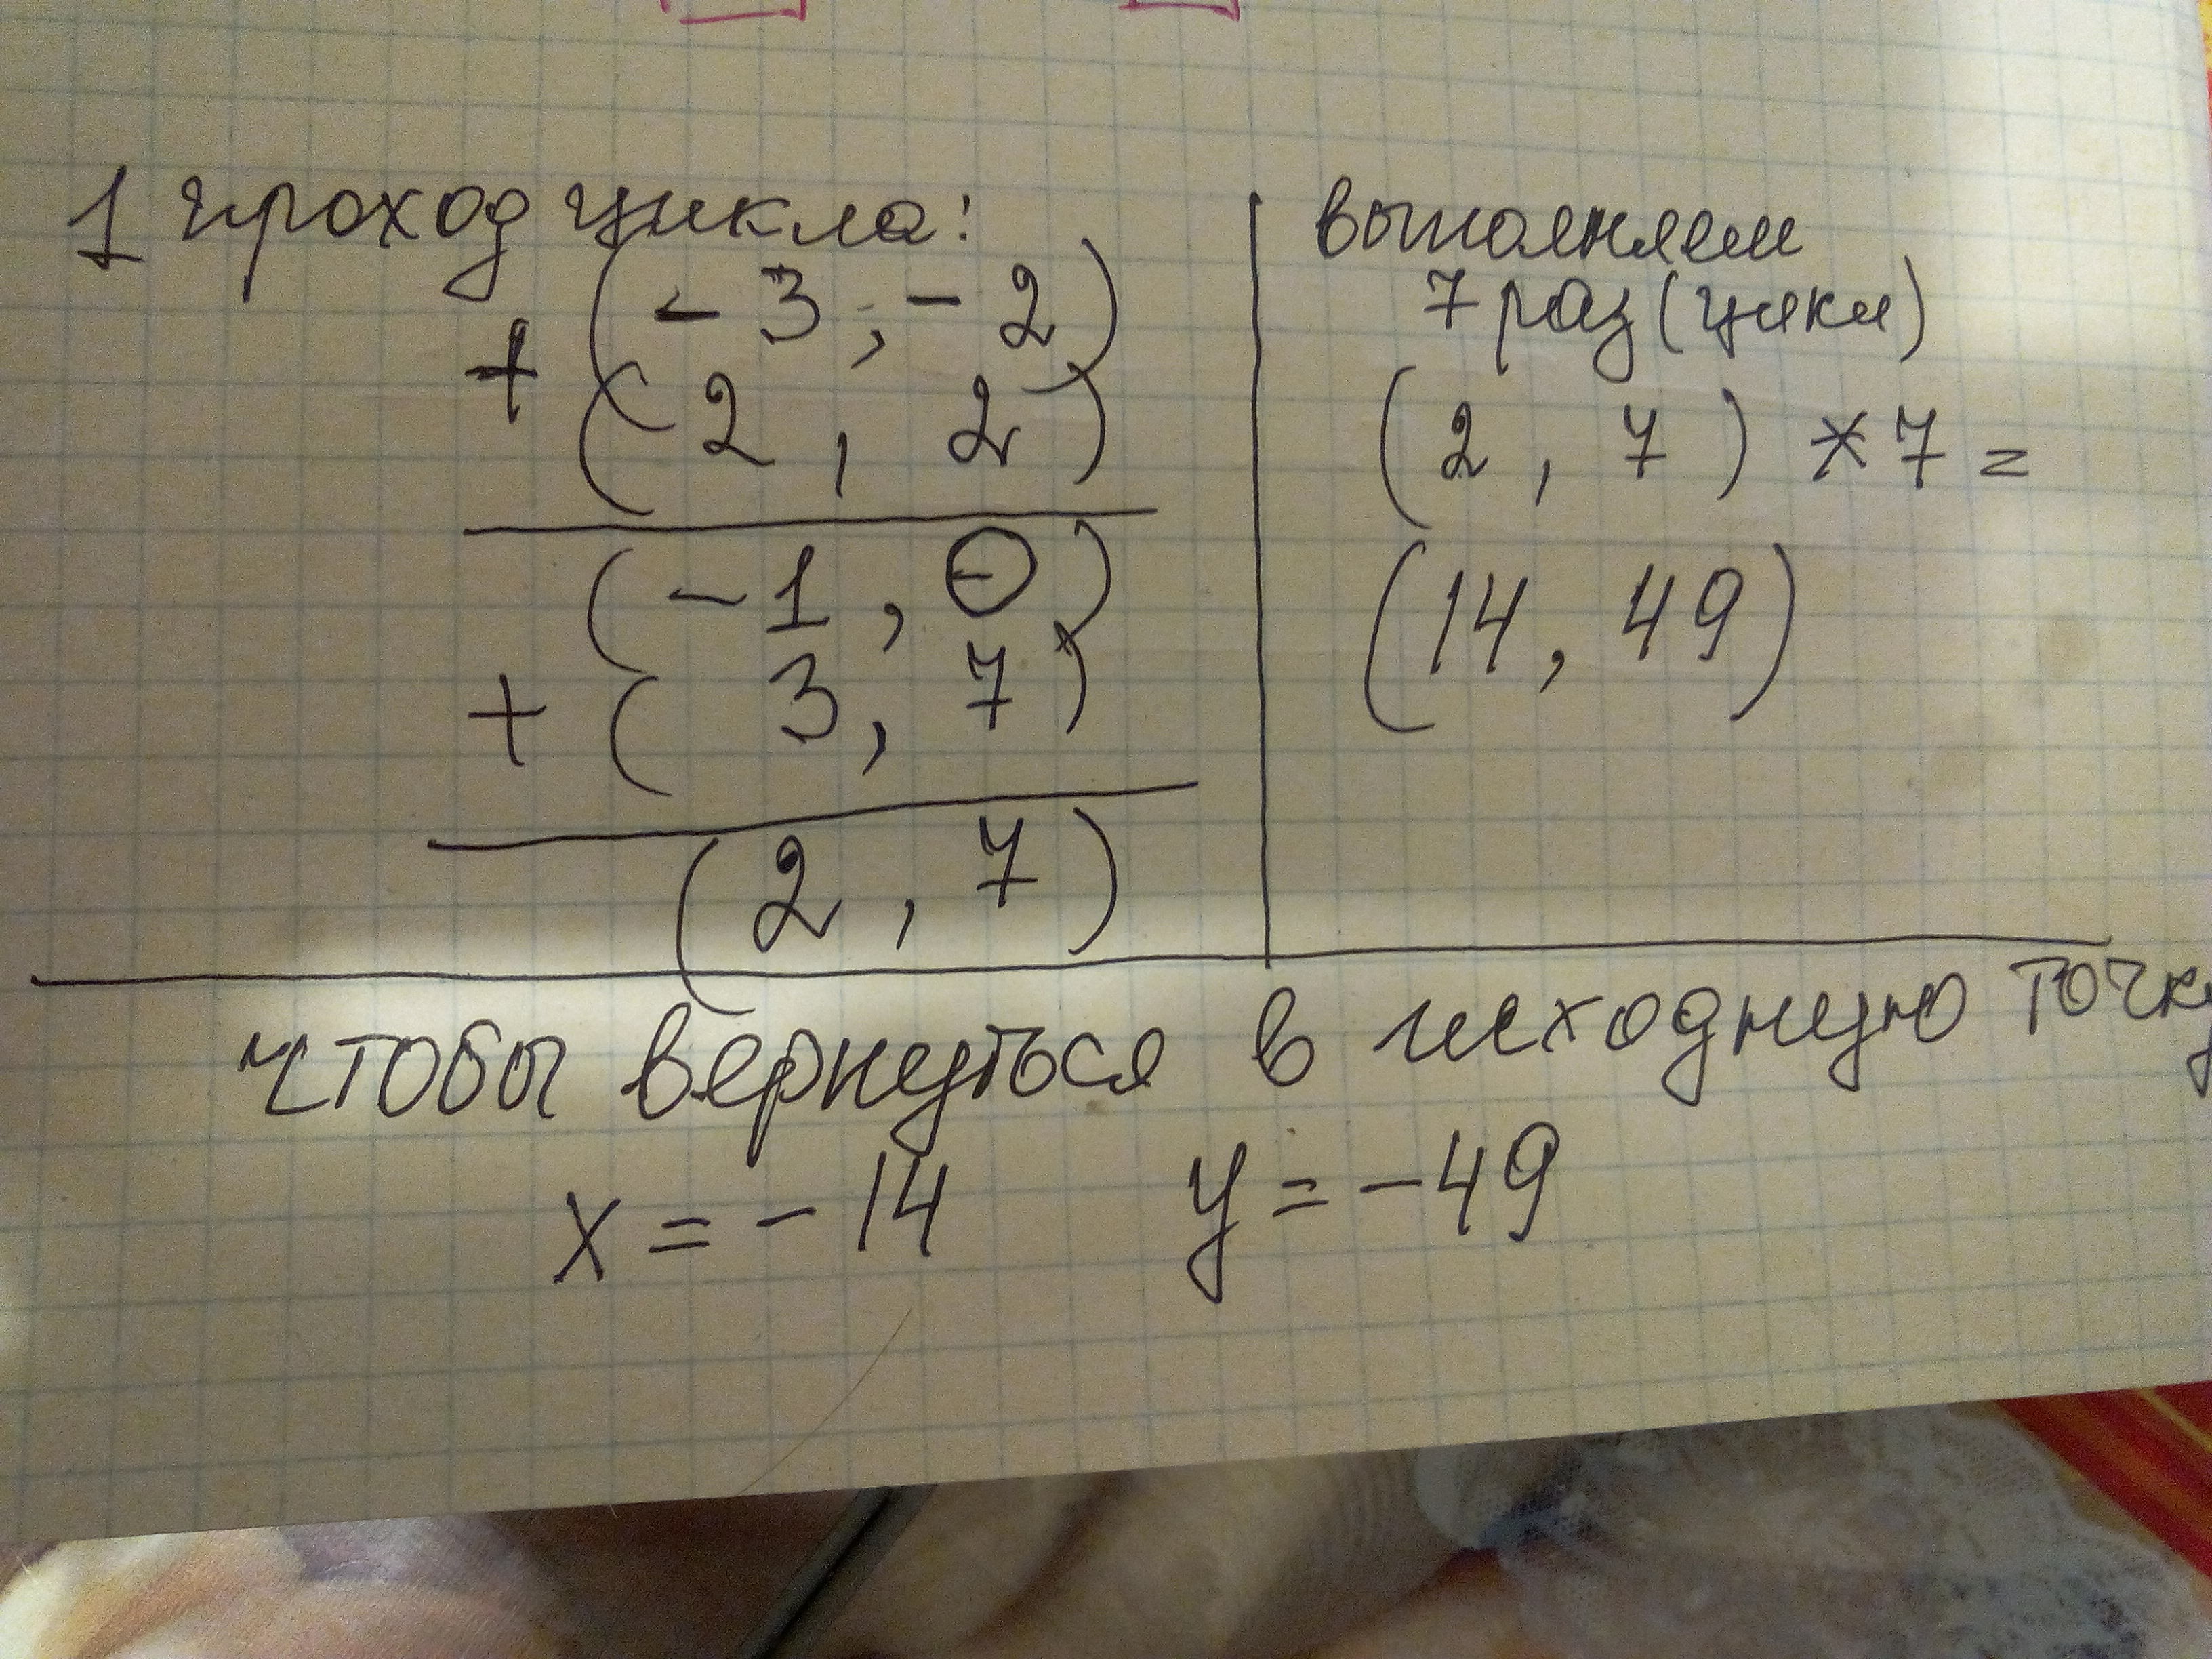 1 проход цикла:
(-3, -2)
+
(2, 2)
(-1, 0)
+ (3, 7)
(2, 7)
выполняем
7 раз (цикл)
(2, 7) * 7 =
(14, 49)
чтобы вернуться в исходную точку
x = -14 y = -49